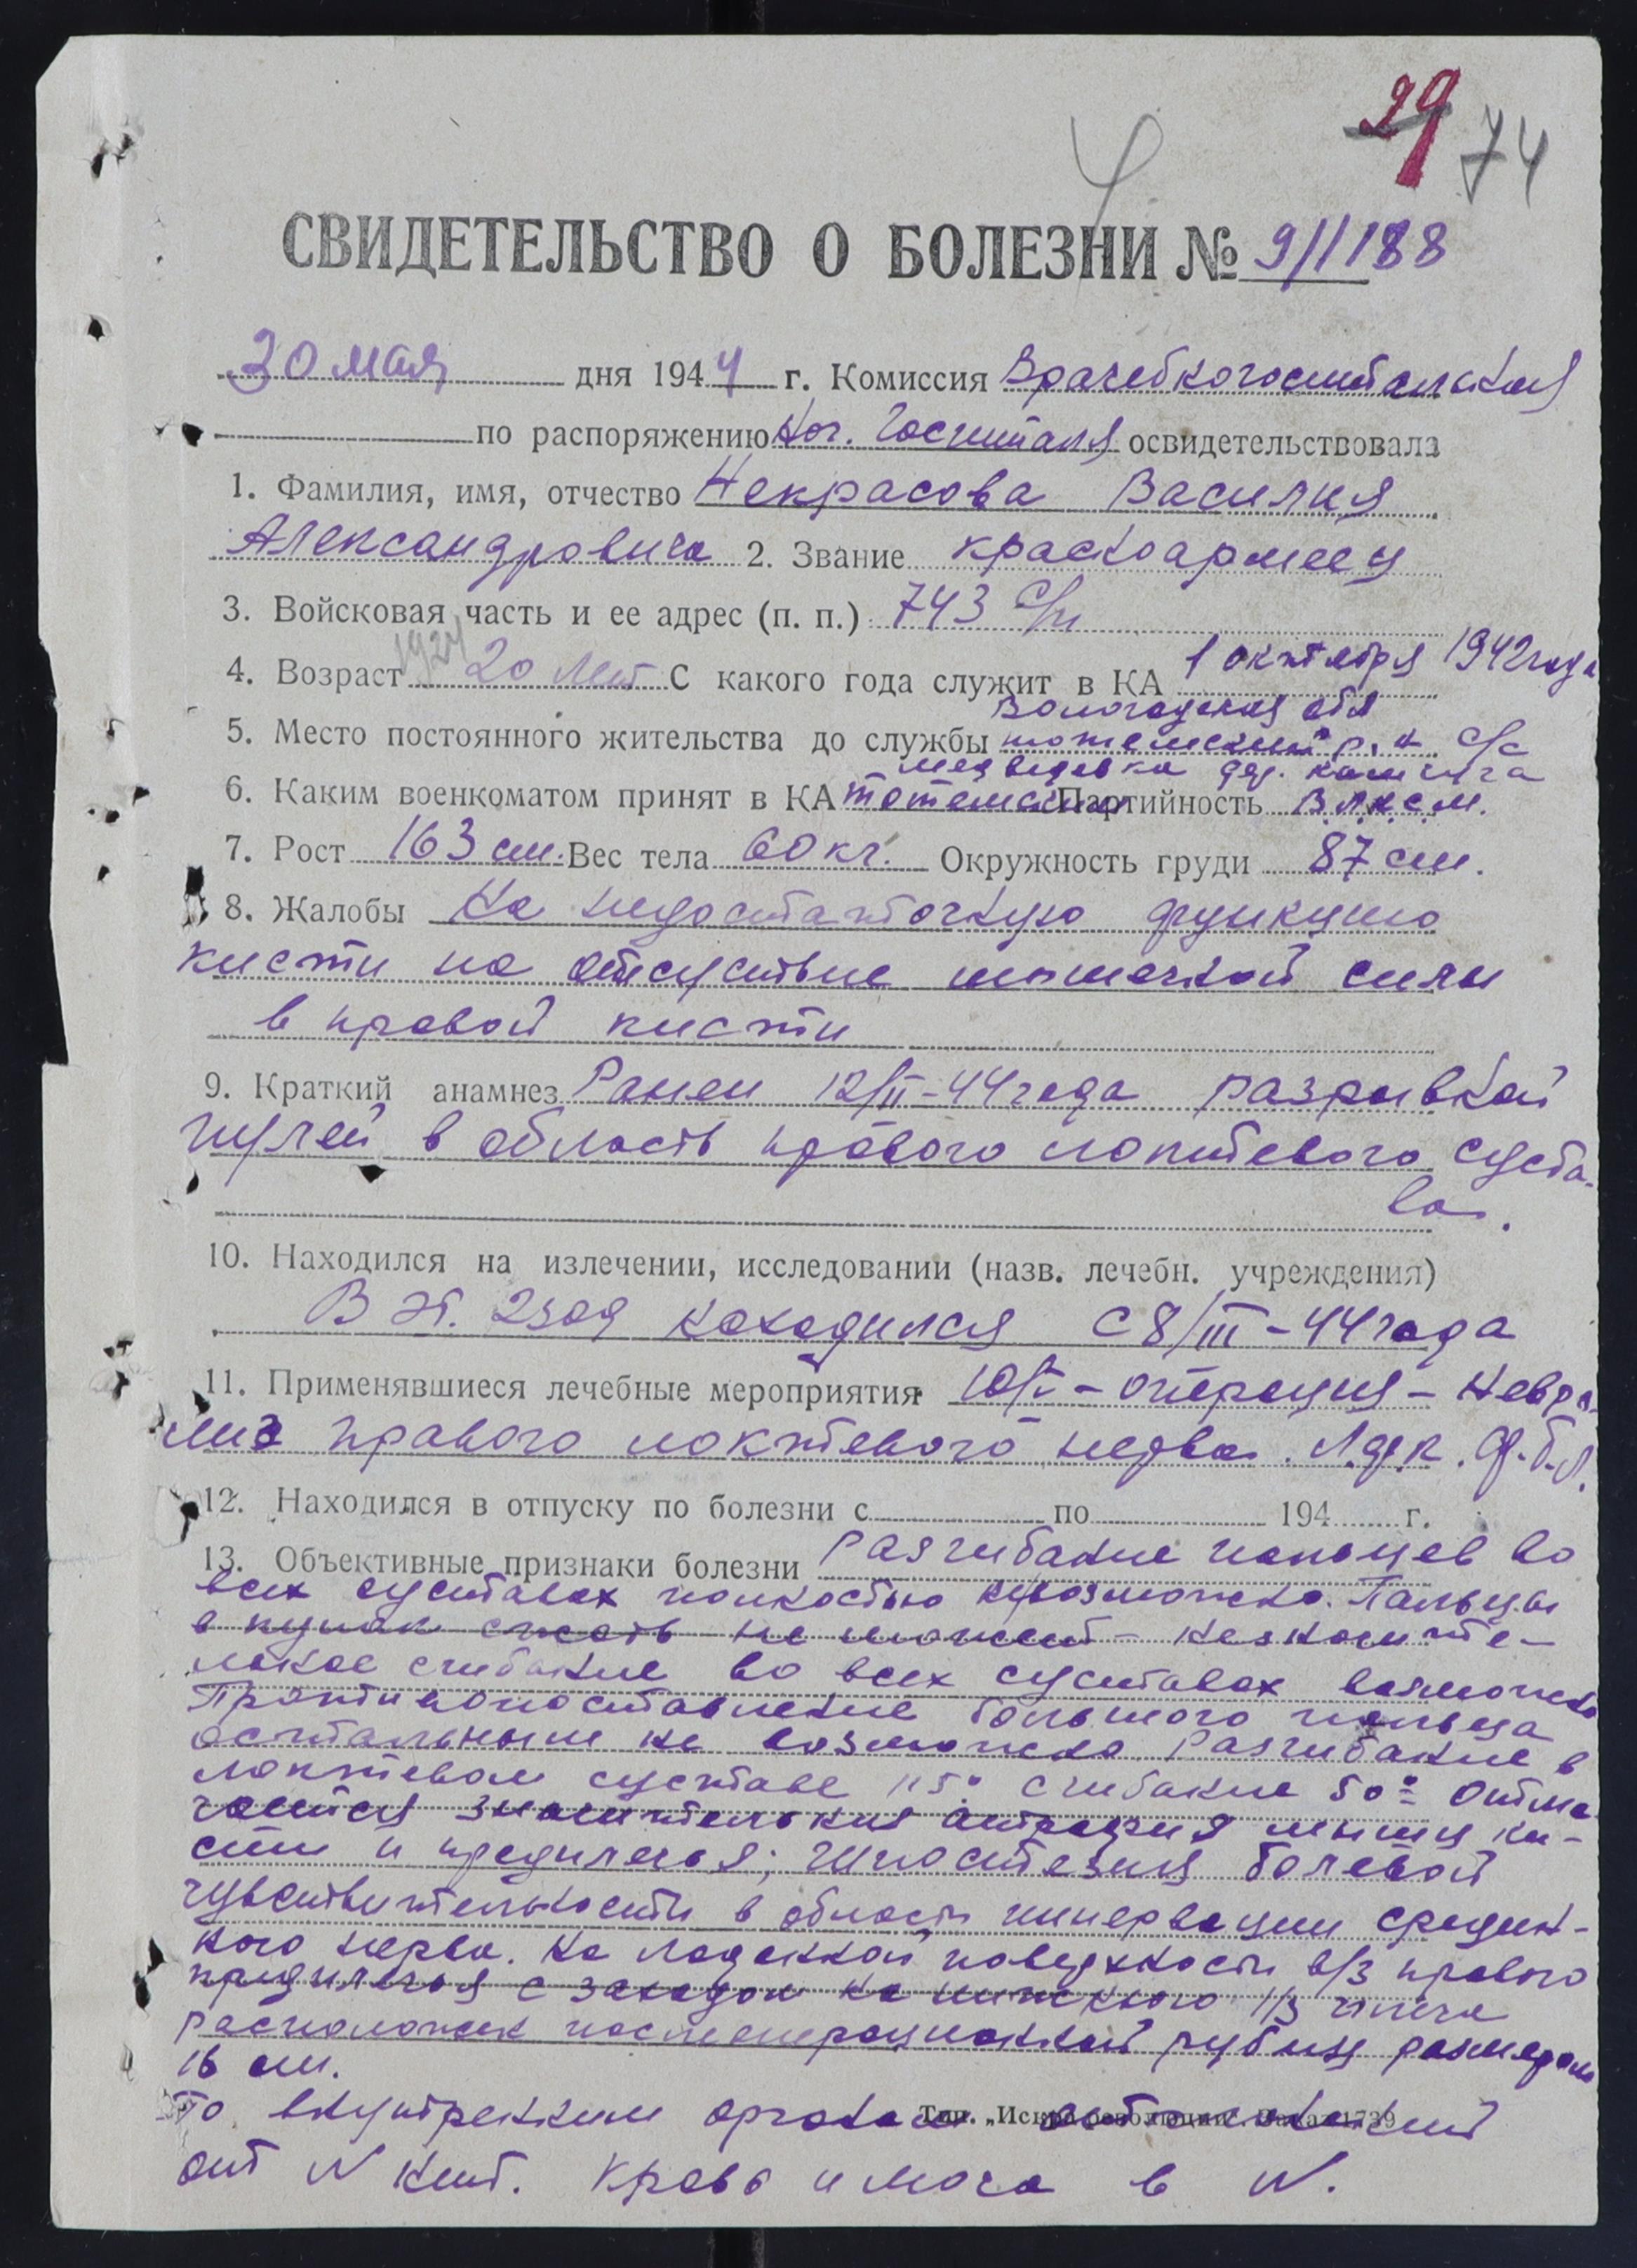 29 74
СВИДЕТЕЛЬСТВО О БОЛЕЗНИ № 9/1188
30 мая дня 1944 г. Комиссия Врачебногоспитальная
по распоряжению Нач. Госпиталя освидетельствовала
1. Фамилия, имя, отчество Некрасова Василия
Александровича 2. Звание красноармеец
3. Войсковая часть и ее адрес (п. п.) 743 с/п
1924
4. Возраст 20 лет С какого года служит в КА 1 октября 1942 года
Вологодская обл
5. Место постоянного жительства до службы тотемский р.н с/с
медведевка дер.
6. Каким военкоматом принят в КА тотемским Партийность ВЛКСМ.
7. Рост 163 см. Вес тела 60 кг. Окружность груди 87 см.
8. Жалобы На недостаточную функцию
кисти на отсутствие мышечной силы
в правой кисти
9. Краткий анамнез Ранен 12/II-44 года разрывной
пулей в область правого локтевого суста-
ва.
10. Находился на излечении, исследовании (назв. лечебн. учреждения)
В эг. находился с 8/III-44 года
11. Применявшиеся лечебные мероприятия операция - Невро
лиз правого локтевого нерва. Л.ф.к. ф.т.л.
12. Находился в отпуску по болезни с по 194 г.
13. Объективные признаки болезни Разгибание пальцев во
всех суставах полностью невозможно. Пальцы
в кулак сжать не может - незначите-
льное сгибание во всех суставах возможно
Противопоставление большого пальца
остальным не возможно. Разгибание в
локтевом суставе 115° сгибание 50° Отме
чается значительная атрофия мышц ки-
сти и предплечья; Гипостезия болевой
чувствительности в области иннервации средин-
ного нерва. На ладонной поверхности в/3 правого
предплечья с заходом на нижнюю 1/3 плеча
расположен послеоперационный рубец размером
16 см.
По внутренним органам отклонений
Тип. „Искра революции“. Заказ 1739
от N нет. Кровь и моча в N.